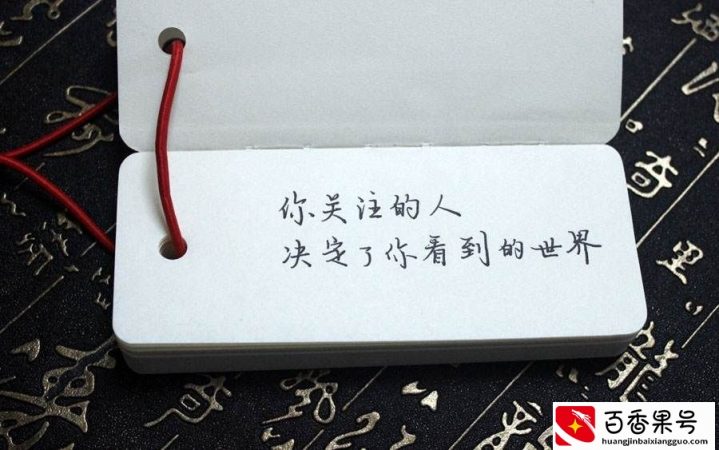 你关注的人
决定了你看到的世界
百香果号
huangjinbaixiangguo.com